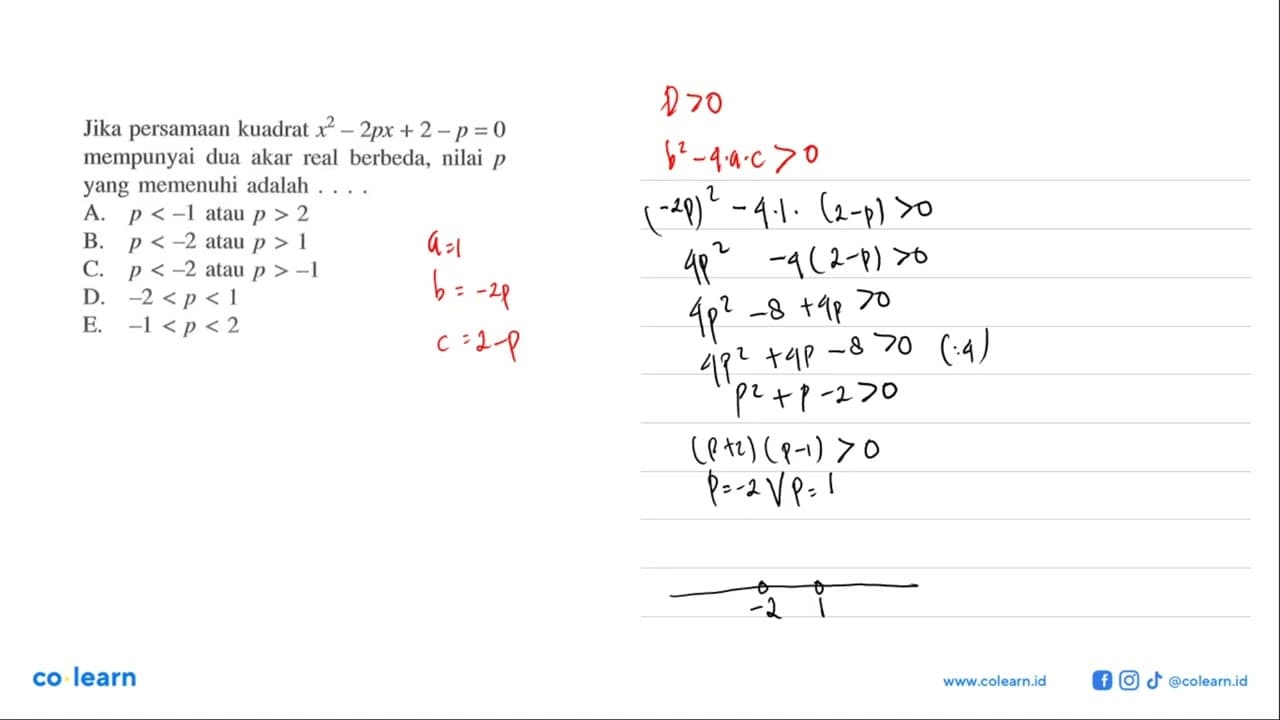 Jika persamaan kuadrat x² – 2px + 2 – p = 0
mempunyai dua akar real berbeda, nilai p
yang memenuhi adalah . . . .
A. p < –1 atau p > 2
B. p < –2 atau p > 1
C. p < –2 atau p > –1
D. –2 < p < 1
E. –1 < p < 2
a=1
b = -2p
c = 2-p
D>0
b² - 4·a·c > 0
(-2p)² - 4·1· (2-p) >0
4p² -4(2-p) >0
4p² -8 +4p >0
4p² +4p -8 >0 (:4)
p² + p -2 >0
(p+2)(p-1) > 0
p=-2 V p=1
-2 1
co learn
www.colearn.id
@colearn.id